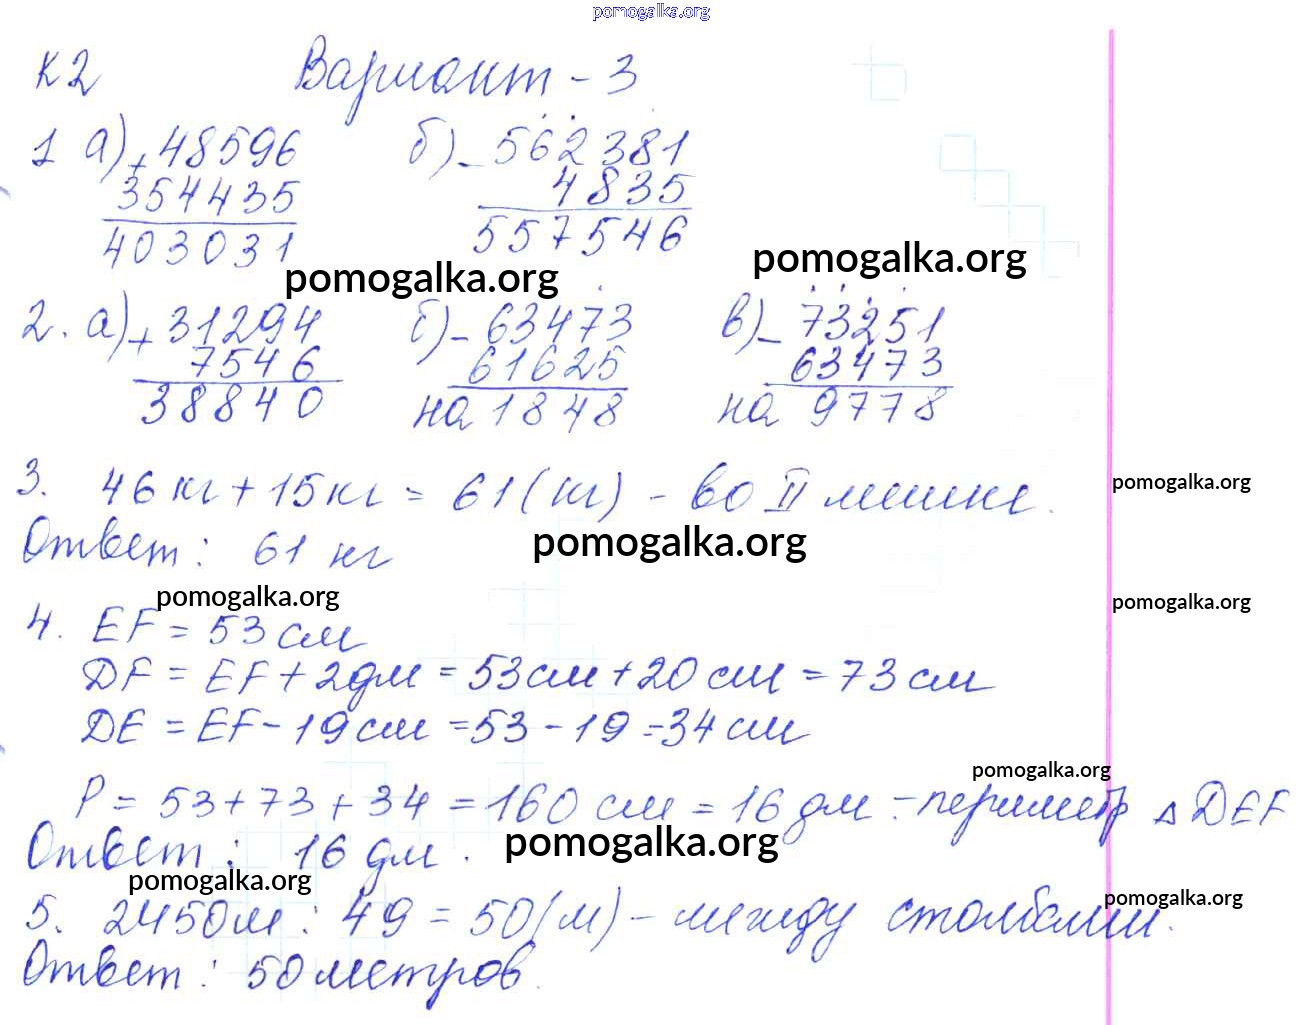 pomogalka.org
К2 Вариант - 3
1 а) + 48596 б) - 562381
354435 4835
403031 557546
pomogalka.org pomogalka.org
2. а) + 31294 б) - 63473 в) - 73251
7546 61625 63473
38840 на 1848 на 9778
3. 46 кг + 15 кг = 61 (кг) - во II мешке.
pomogalka.org
Ответ: 61 кг
pomogalka.org
pomogalka.org
pomogalka.org
4. EF = 53 см
DF = EF + 2дм = 53см + 20 см = 73 см
DE = EF - 19 см = 53 - 19 = 34 см
pomogalka.org
P = 53 + 73 + 34 = 160 см = 16 дм - периметр △ DEF
Ответ: 16 дм.
pomogalka.org
pomogalka.org
pomogalka.org
5. 2450м : 49 = 50 (м) - между столбами.
Ответ: 50 метров.